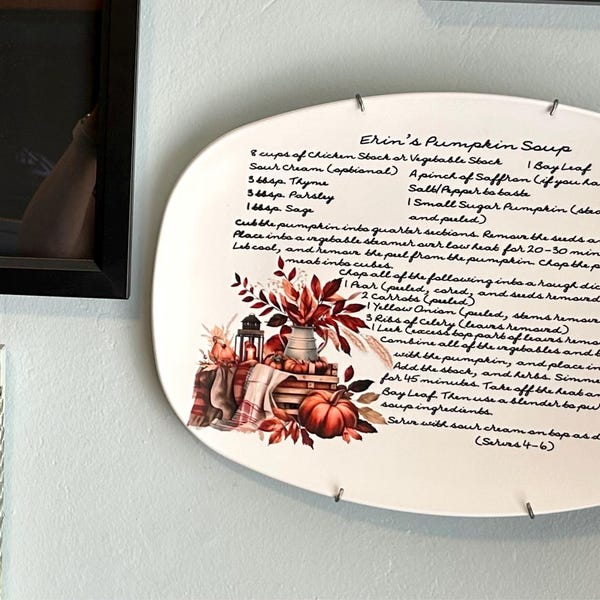 Erin's Pumpkin Soup
8 cups of Chicken Stock or Vegetable Stock 1 Bay Leaf
Sour Cream (optional) A pinch of Saffron (if you ha
3 tbsp. Thyme Salt/Pepper to taste
3 tbsp. Parsley 1 Small Sugar Pumpkin (stea
1 tbsp. Sage and peeled)
Cut the pumpkin into quarter sections. Remove the seeds a
Place into a vegetable steamer over low heat for 20-30 min
Let cool, and remove the peel from the pumpkin. Chop the p
meat into cubes.
Chop all of the following into a rough dic
1 Pear (peeled, cored, and seeds removed
2 Carrots (peeled)
1 Yellow Onion (peeled, stems remov
3 Ribs of Celery (leaves removed)
1 Leek (excess top part of leaves remov
Combine all of the vegetables and b
with the pumpkin, and place in
Add the stock, and herbs. Simme
for 45 minutes. Take off the heat an
Bay Leaf. Then use a blender to pur
soup ingredients.
Serve with sour cream on top as d
(Serves 4-6)